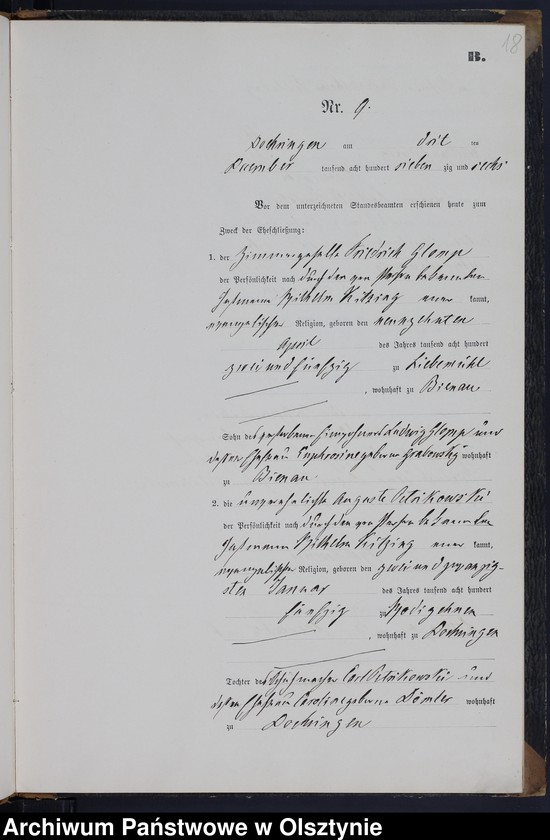 18
B.
Nr. 9.
Doehringen am drei ten
Dezember tausend acht hundert sieben zig und sechs
Vor dem unterzeichneten Standesbeamten erschienen heute zum
Zweck der Eheschließung:
1. der Zimmergeselle Friedrich Glomp
der Persönlichkeit nach durch den von Person bekannten
Instmann Wilhelm Kitzing aner kannt,
evangelischer Religion, geboren den neunzehnten
April des Jahres tausend acht hundert
zwei und fünfzig zu Liebemühl
, wohnhaft zu Bienau
Sohn des verstorbenen Ludwig Glomp und
dessen Ehefrau Euphrosine geborene Grabowsky wohnhaft
zu Bienau
2. die unverehelichte Auguste
der Persönlichkeit nach durch den von Person bekannten
Instmann Wilhelm Kitzing aner kannt,
evangelischer Religion, geboren den zwei und zwanzig-
sten Januar des Jahres tausend acht hundert
fünfzig zu
, wohnhaft zu Doehringen
Tochter des Schuhmacher Carl und
dessen Ehefrau Caroline geborene wohnhaft
zu Doehringen
Archiwum Państwowe w Olsztynie